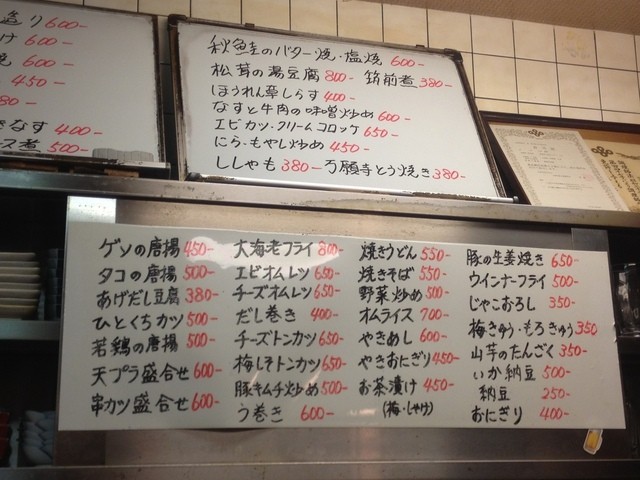 造り 600-
け 600-
600-
450-
80-
なす 400-
ース煮 500-
秋鮭のバター焼・塩焼 600-
松茸の湯豆腐 800- 筑前煮 380-
ほうれん草しらす 400-
なすと牛肉の味噌炒め 600-
エビカツ・クリームコロッケ 650-
にら・もやし炒め 450-
ししゃも 380- 万願寺とう焼き 380-
ゲソの唐揚 450-
タコの唐揚 500-
あげだし豆腐 380-
ひとくちカツ 500-
若鶏の唐揚 500-
天プラ盛合せ 600-
串カツ盛合せ 600-
大海老フライ 800-
エビオムレツ 650-
チーズオムレツ 650-
だし巻き 400-
チーズトンカツ 650-
梅しそトンカツ 650-
豚キムチ炒め 500-
う巻き 600-
焼きうどん 550-
焼きそば 550-
野菜炒め 500-
オムライス 700-
やきめし 600-
やきおにぎり 450-
お茶漬け 450-
(梅・しゃけ)
豚の生姜焼き 650-
ウインナーフライ 500-
じゃこおろし 350-
梅きゅう・もろきゅう 350
山芋のたんざく 350-
いか納豆 500-
納豆 250-
おにぎり 400-